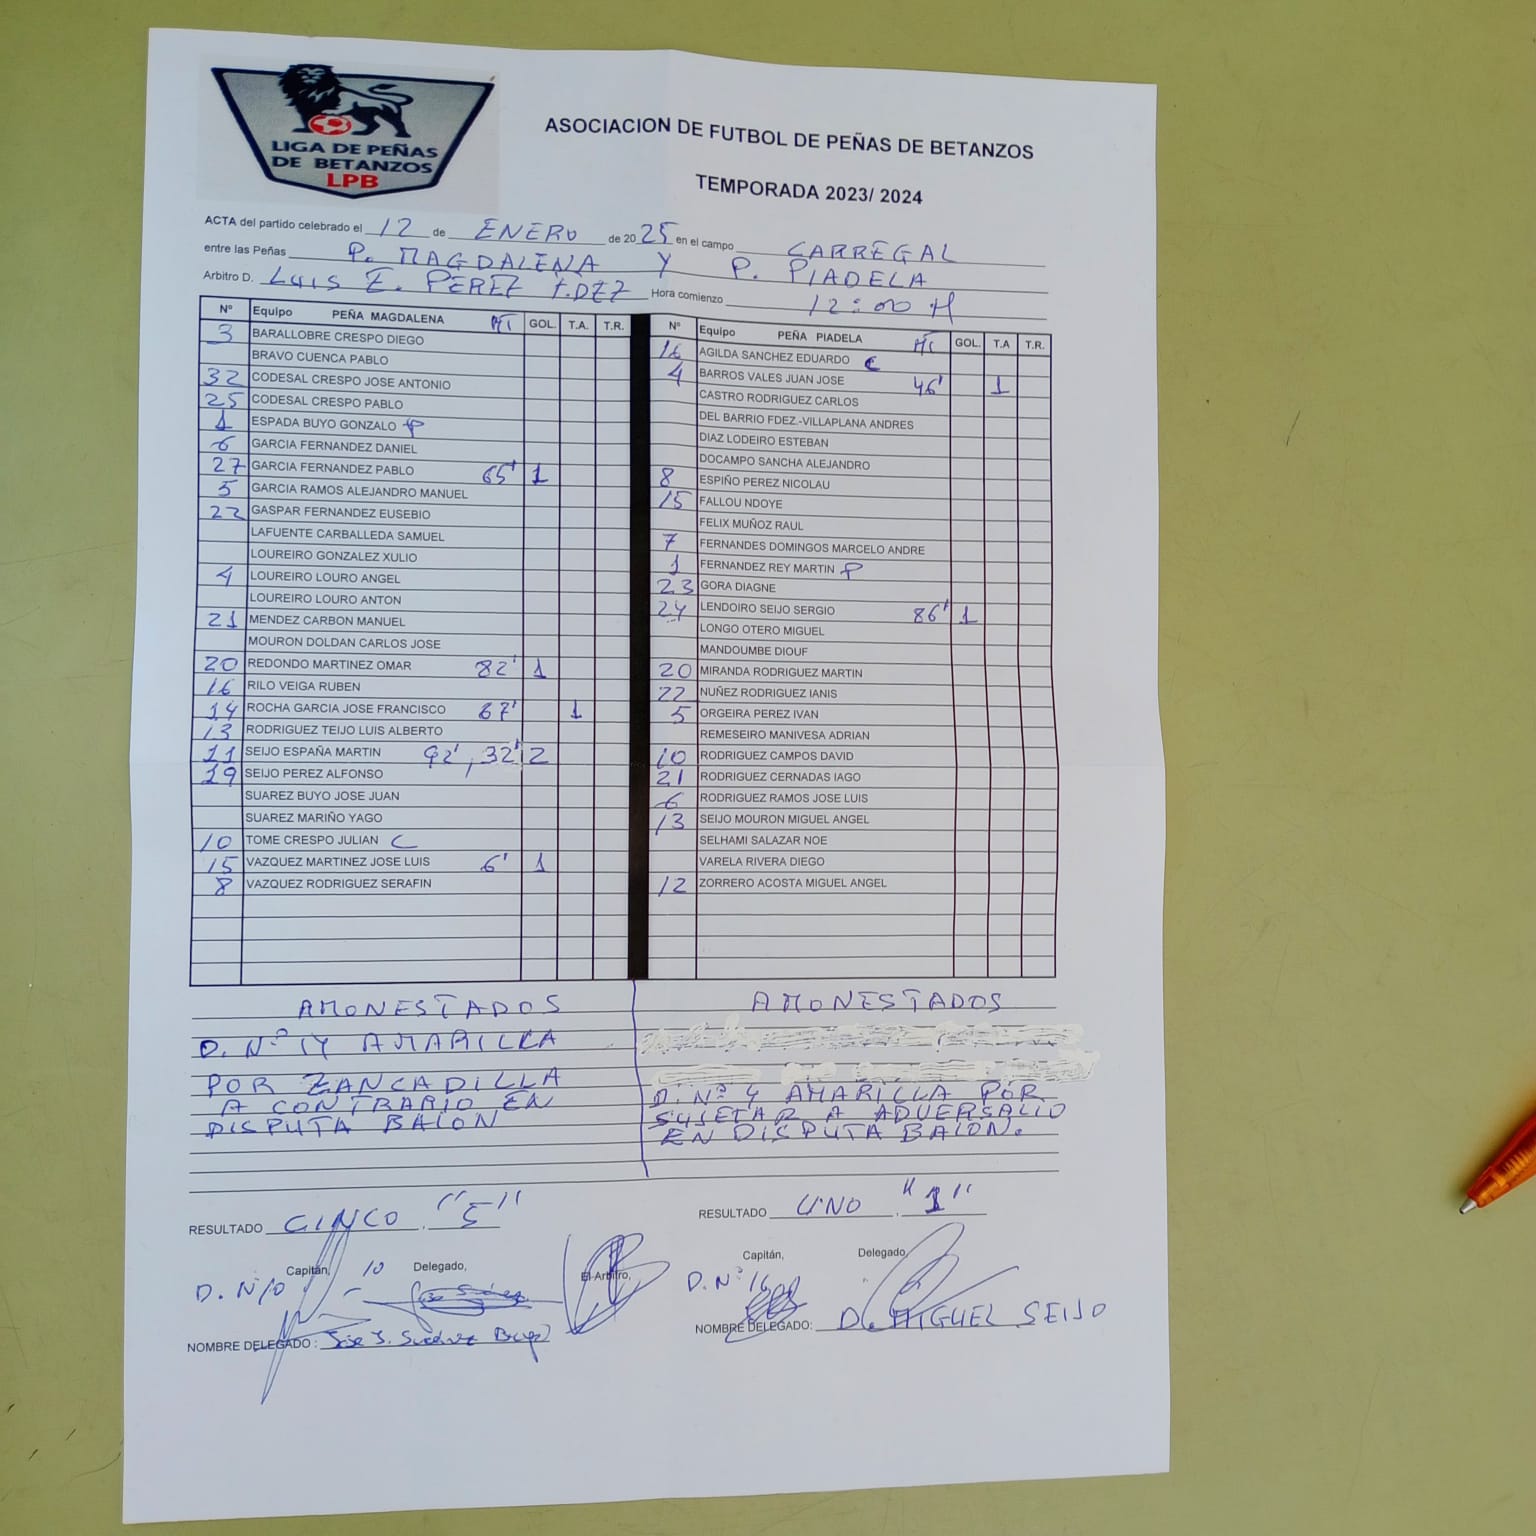 LIGA DE PEÑAS
DE BETANZOS
LPB
ASOCIACION DE FUTBOL DE PEÑAS DE BETANZOS
TEMPORADA 2023/ 2024
ACTA del partido celebrado el 12 de ENERO de 2025 en el campo CARREGAL
entre las Peñas P. MAGDALENA Y P. PIADELA
Arbitro D. LUIS E. PEREZ F.DEZ Hora comienzo 12:00 H
Nº Equipo PEÑA MAGDALENA MT GOL. T.A. T.R.
3 BARALLOBRE CRESPO DIEGO
BRAVO CUENCA PABLO
32 CODESAL CRESPO JOSE ANTONIO
25 CODESAL CRESPO PABLO
1 ESPADA BUYO GONZALO P
6 GARCIA FERNANDEZ DANIEL
27 GARCIA FERNANDEZ PABLO 65' 1
5 GARCIA RAMOS ALEJANDRO MANUEL
22 GASPAR FERNANDEZ EUSEBIO
LAFUENTE CARBALLEDA SAMUEL
LOUREIRO GONZALEZ XULIO
4 LOUREIRO LOURO ANGEL
LOUREIRO LOURO ANTON
21 MENDEZ CARBON MANUEL
MOURON DOLDAN CARLOS JOSE
20 REDONDO MARTINEZ OMAR 82' 1
16 RILO VEIGA RUBEN
14 ROCHA GARCIA JOSE FRANCISCO 67' 1
13 RODRIGUEZ TEIJO LUIS ALBERTO
11 SEIJO ESPAÑA MARTIN 92', 32' 2
19 SEIJO PEREZ ALFONSO
SUAREZ BUYO JOSE JUAN
SUAREZ MARIÑO YAGO
10 TOME CRESPO JULIAN C
15 VAZQUEZ MARTINEZ JOSE LUIS 6' 1
8 VAZQUEZ RODRIGUEZ SERAFIN
Nº Equipo PEÑA PIADELA MT GOL. T.A T.R.
16 AGILDA SANCHEZ EDUARDO C
4 BARROS VALES JUAN JOSE 46' 1
CASTRO RODRIGUEZ CARLOS
DEL BARRIO FDEZ.-VILLAPLANA ANDRES
DIAZ LODEIRO ESTEBAN
DOCAMPO SANCHA ALEJANDRO
8 ESPIÑO PEREZ NICOLAU
15 FALLOU NDOYE
FELIX MUÑOZ RAUL
7 FERNANDES DOMINGOS MARCELO ANDRE
1 FERNANDEZ REY MARTIN P
23 GORA DIAGNE
24 LENDOIRO SEIJO SERGIO 86' 1
LONGO OTERO MIGUEL
MANDOUMBE DIOUF
20 MIRANDA RODRIGUEZ MARTIN
22 NUÑEZ RODRIGUEZ IANIS
5 ORGEIRA PEREZ IVAN
REMESEIRO MANIVESA ADRIAN
10 RODRIGUEZ CAMPOS DAVID
21 RODRIGUEZ CERNADAS IAGO
6 RODRIGUEZ RAMOS JOSE LUIS
13 SEIJO MOURON MIGUEL ANGEL
SELHAMI SALAZAR NOE
VARELA RIVERA DIEGO
12 ZORRERO ACOSTA MIGUEL ANGEL
AMONESTADOS
D. Nº 14 AMARILLA
POR ZANCADILLA
A CONTRARIO EN
DISPUTA BALON
AMONESTADOS
D. Nº 4 AMARILLA POR
SUJETAR A ADVERSALIO
EN DISPUTA BALON.
RESULTADO CINCO "5"
RESULTADO UNO "1"
Capitán, 10 Delegado,
D. Nº10
El Arbitro,
Capitán, Delegado,
D. Nº 16
NOMBRE DELEGADO : José J. Suárez Buyo
NOMBRE DELEGADO: D. MIGUEL SEIJO